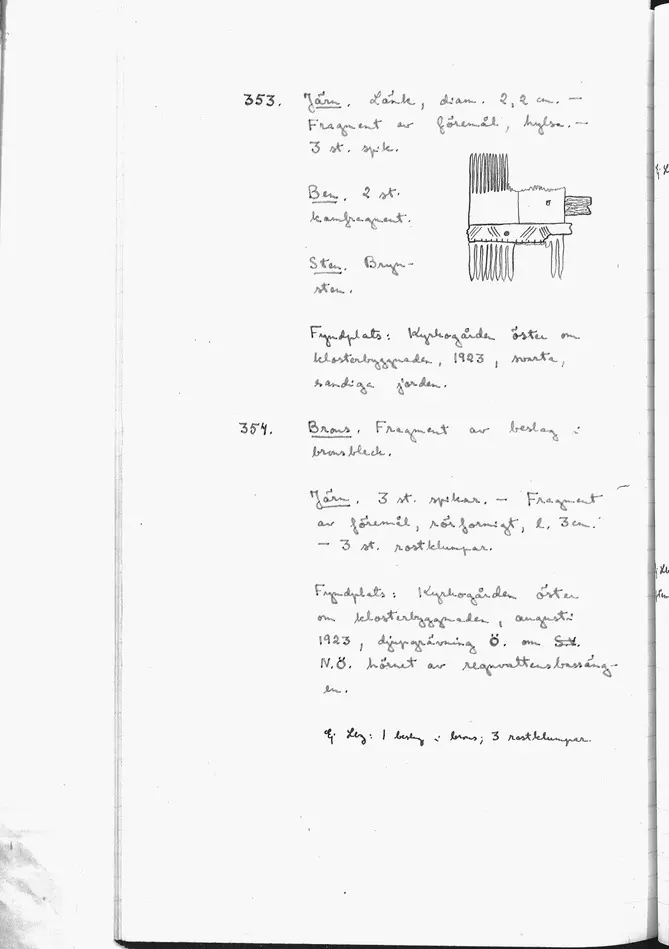 353. Järn. Länk, diam. 2,2 cm. —
Fragment av föremål, hylsa. —
3 st. spik.
Ben. 2 st.
kamfragment.
Sten. Bryn-
sten.
Fyndplats: Kyrkogården öster om
klosterbyggnaden, 1923, svarta,
sandiga jorden.
354. Brons. Fragment av beslag i
bronsbleck.
Järn. 3 st. spikar. — Fragment
av föremål, rörformigt, l. 3 cm.
— 3 st. rostklumpar.
Fyndplats: Kyrkogården öster
om klosterbyggnaden, augusti
1923, djupgrävning Ö. om S.V.
N.Ö. hörnet av regnvattensbassäng-
en.
Ej : 1 beslag i brons; 3 rostklumpar.